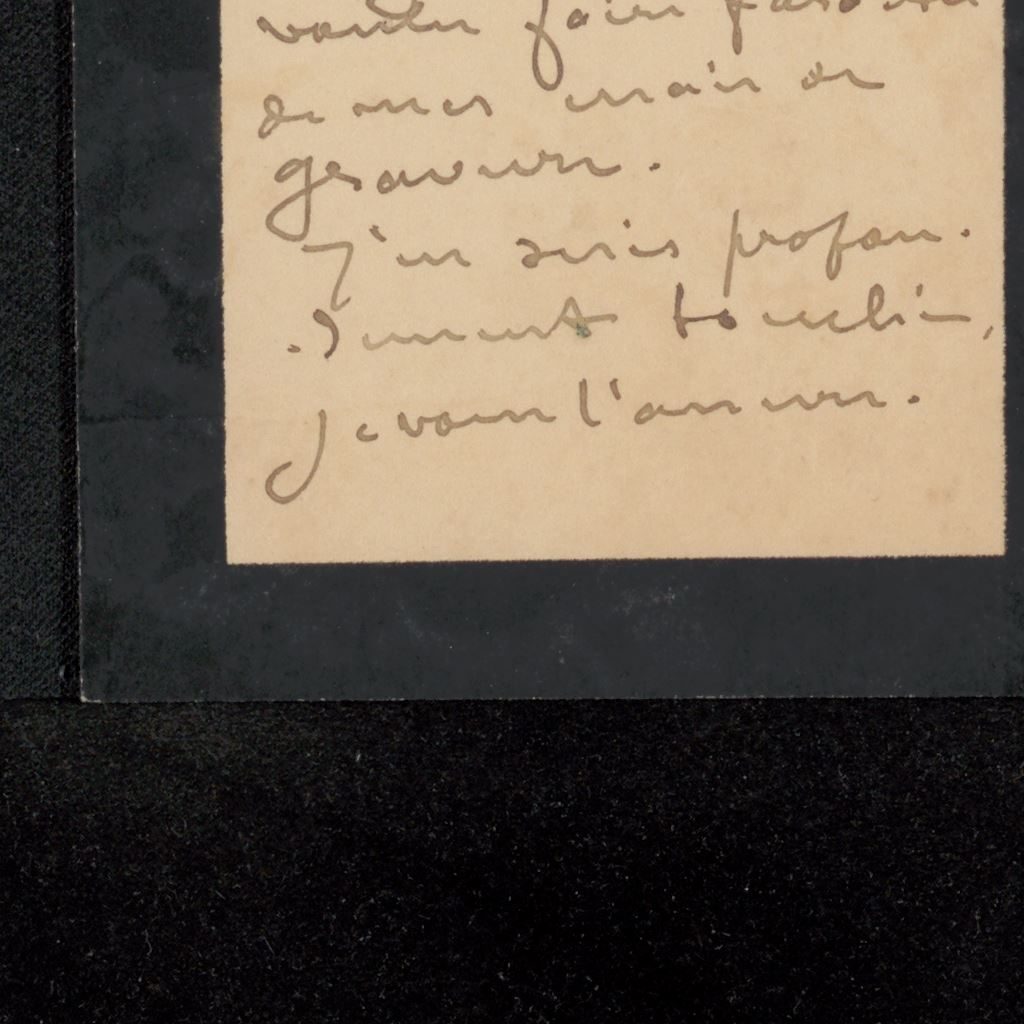 voulu faire
de mes essais de
gravure.
J'en suis profon-
-dément touchée,
je vous l'assure.